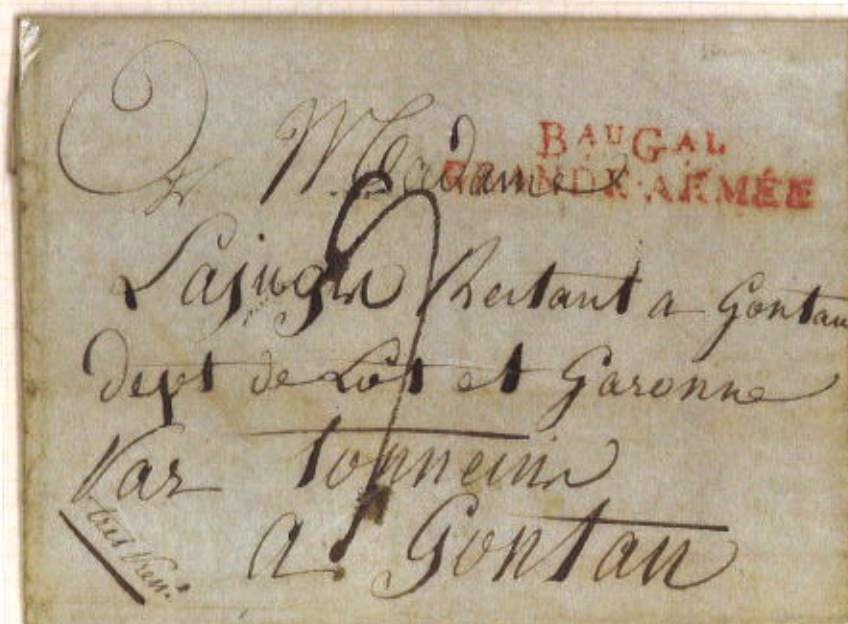 BAUGAL
GRANDE ARMÉE
A Madame
Lajugie Restant a Gontau
dept de Lot et Garonne
Par tonneins
a Gontau